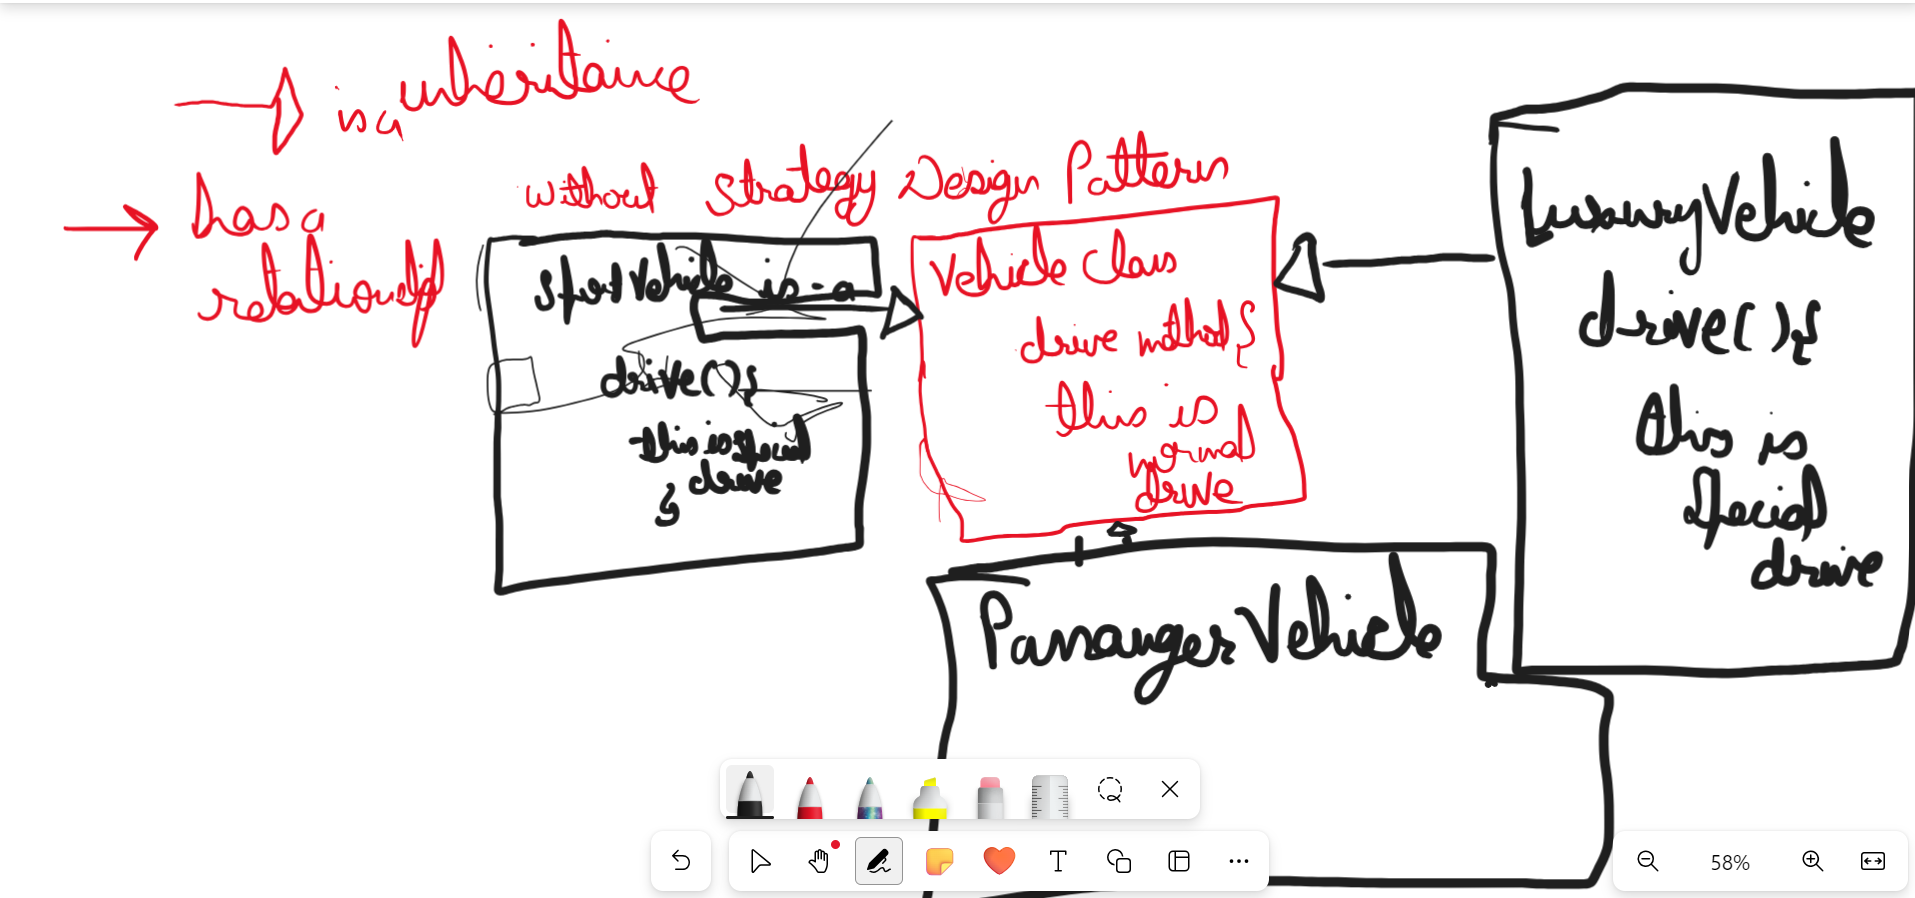 is a inheritance
has a
relationship
without Strategy Design Pattern
SportVehicle is-a
drive(){
this is special
drive
}
Vehicle Class
drive method{
this is
normal
drive
LuxuryVehicle
drive(){
this is
special
drive
PassangerVehicle
58%